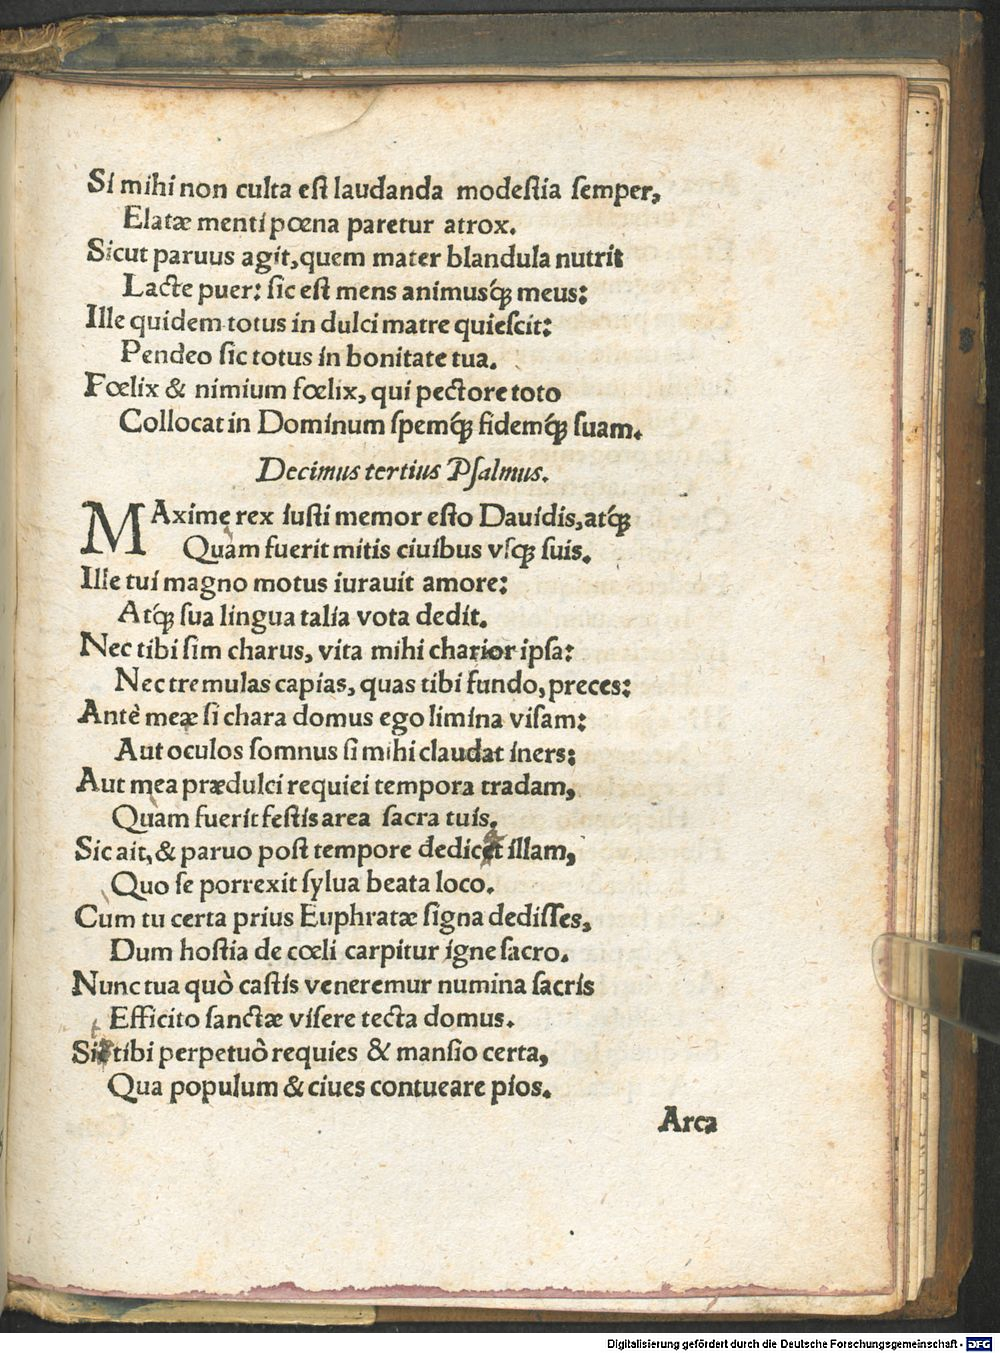 Si mihi non culta est laudanda modestia semper,
Elatæ menti pœna paretur atrox.
Sicut paruus agit, quem mater blandula nutrit
Lacte puer: sic est mens animusq́ꝫ meus:
Ille quidem totus in dulci matre quiescit:
Pendeo sic totus in bonitate tua.
Fœlix & nimium fœlix, qui pectore toto
Collocat in Dominum spemq́ꝫ fidemq́ꝫ suam.
Decimus tertius Psalmus.
MAxime rex iusti memor esto Dauidis, atq́ꝫ
Quam fuerit mitis ciuibus vsqꝫ suis.
Ille tui magno motus iurauit amore:
Atq́ꝫ sua lingua talia vota dedit.
Nec tibi sim charus, vita mihi charior ipsa:
Nec tremulas capias, quas tibi fundo, preces:
Antè meæ si chara domus ego limina visam:
Aut oculos somnus si mihi claudat iners:
Aut mea prædulci requiei tempora tradam,
Quam fuerit festis area sacra tuis.
Sic ait, & paruo post tempore dedicet illam,
Quo se porrexit sylua beata loco.
Cum tu certa prius Euphratæ signa dedisses,
Dum hostia de cœli carpitur igne sacro.
Nunc tua quò castis veneremur numina sacris
Efficito sanctæ visere tecta domus.
tibi perpetuò requies & mansio certa,
Qua populum & ciues contueare pios.
Arca
Digitalisierung gefördert durch die Deutsche Forschungsgemeinschaft - DFG